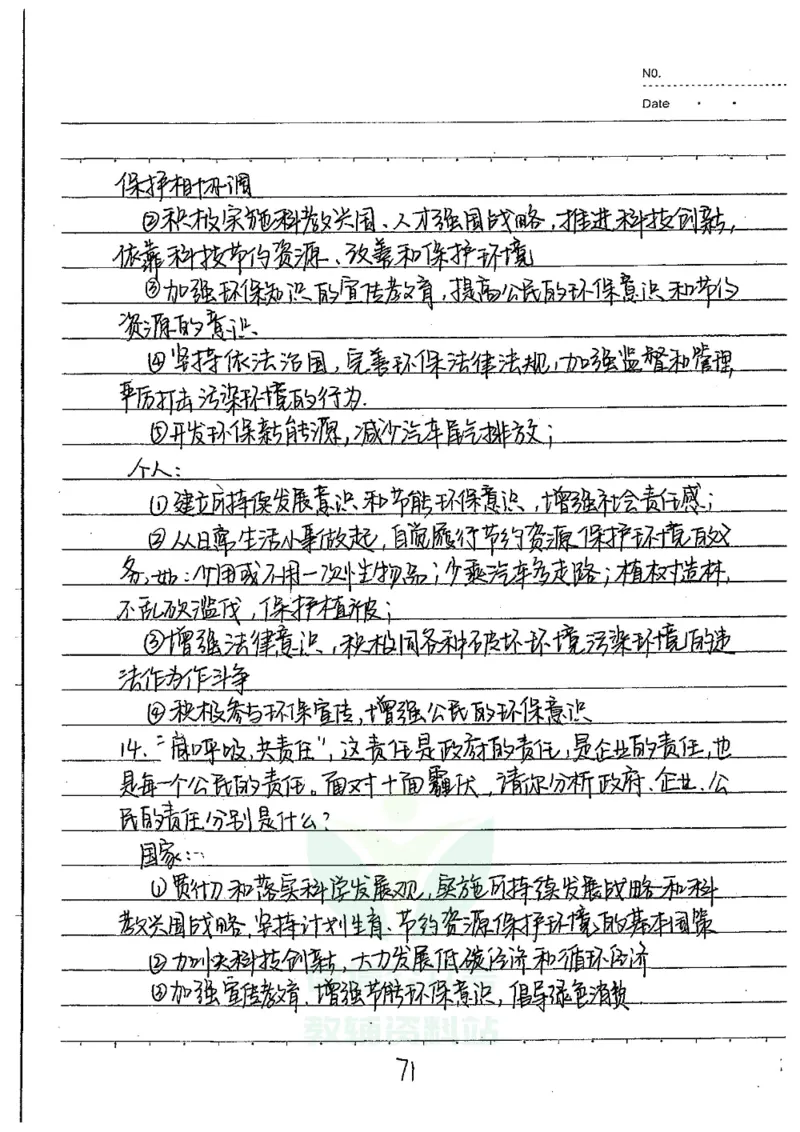 NO.
Date
保护相协调
②积极实施科教兴国、人才强国战略,推进科技创新,
依靠科技节约资源、改善和保护环境
③加强环保知识的宣传教育,提高公民的环保意识和节约
资源的意识
④坚持依法治国,完善环保法律法规,加强监督和管理
严厉打击污染环境的行为.
⑤开发环保新能源,减少汽车尾气排放;
个人:
①建立可持续发展意识和节能环保意识,增强社会责任感;
②从日常生活小事做起,自觉履行节约资源保护环境的义
务,如:少用或不用一次性生物品;少乘汽车多走路;植树造林,
不乱砍滥伐,保护植被;
③增强法律意识,积极同各种破坏环境污染环境的违
法作为作斗争
④积极参与环保宣传,增强公民的环保意识
14."同呼吸,共责任",这责任是政府的责任,是企业的责任,也
是每一个公民的责任。面对十面霾伏,请你分析政府、企业、公
民的责任分别是什么?
国家:
①贯彻和落实科学发展观,实施可持续发展战略和科
教兴国战略,坚持计划生育、节约资源保护环境的基本国策
②加快科技创新,大力发展低碳经济和循环经济
③加强宣传教育,增强节能环保意识,倡导绿色消费
教辅资料站
71